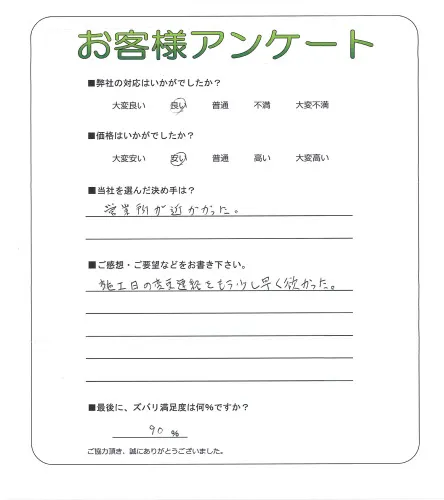 お客様アンケート
■弊社の対応はいかがでしたか？
大変良い 良い 普通 不満 大変不満
■価格はいかがでしたか？
大変安い 安い 普通 高い 大変高い
■当社を選んだ決め手は？
営業所が近かかった。
■ご感想・ご要望などをお書き下さい。
施工日の変更連絡をもう少し早く欲かった。
■最後に、ズバリ満足度は何％ですか？
90 ％
ご協力頂き、誠にありがとうございました。